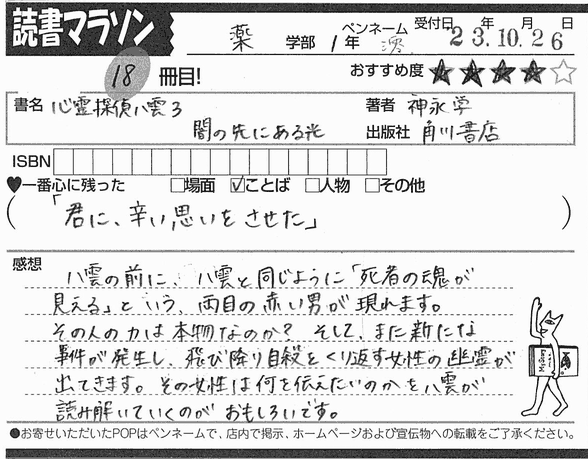 読書マラソン
薬 学部 1年 ペンネーム 澪 受付日 23年10月26日
18 冊目!
おすすめ度 ★★★★☆
書名 心霊探偵八雲3
闇の先にある光
著者 神永学
出版社 角川書店
ISBN
♥一番心に残った □場面 ☑ことば □人物 □その他
(「君に、辛い思いをさせた」)
感想
八雲の前に、八雲と同じように「死者の魂が
見える」という、両目の赤い男が現れます。
その人の力は本物なのか? そして、また新たな
事件が発生し、飛び降り自殺をくり返す女性の幽霊が
出てきます。その女性は何を伝えたいのかを八雲が
読み解いていくのがおもしろいです。
●お寄せいただいたPOPはペンネームで、店内で掲示、ホームページおよび宣伝物への転載をご了承ください。